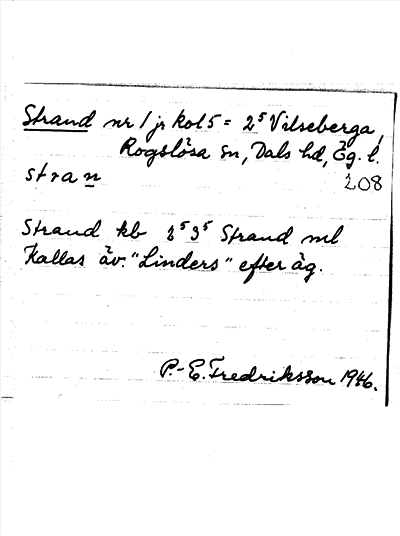 Strand nr 1 jr kol 5 = 2⁵ Vilseberga,
Rogslösa sn, Dals hd, Ög. l.
stran 208
Strand kb 2⁵ 3⁵ Strand ml
Kallas äv. "Linders" efter äg.
P.-E. Fredriksson 1946.